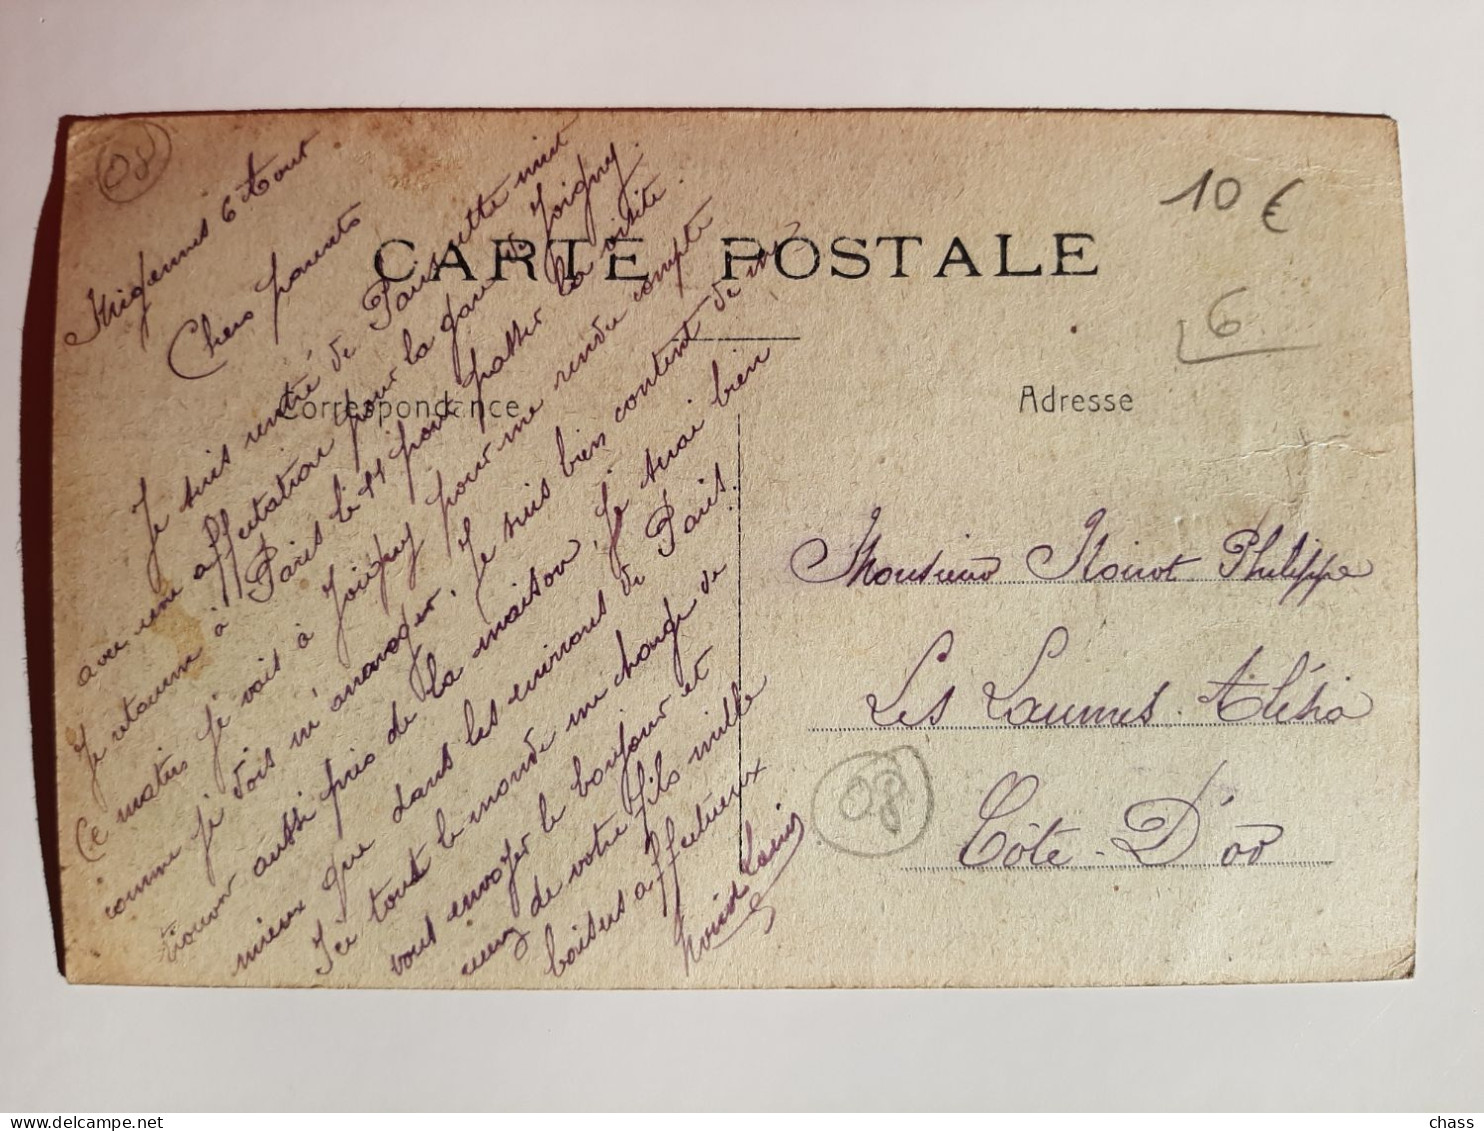 08
Migennes 6 Aout
Chers parents
CARTE POSTALE
Correspondance
Je suis rentré de Paris cette nuit
avec une affectation pour la gare de Joigny.
Je retourne à Paris le 11 pour passer la visite.
Ce matin je vais à Joigny pour me rendre compte
comme je dois m'arranger. Je suis bien content de me
trouver aussi près de la maison, je serai bien
mieux que dans les environs de Paris.
Ici tout le monde me charge de
vous envoyer le bonjour et
de votre fils mille
baisers affectueux
Louis
10 €
6
Adresse
Monsieur Philippe
Les Laumes Alésia
08
Côte-D'or
chass